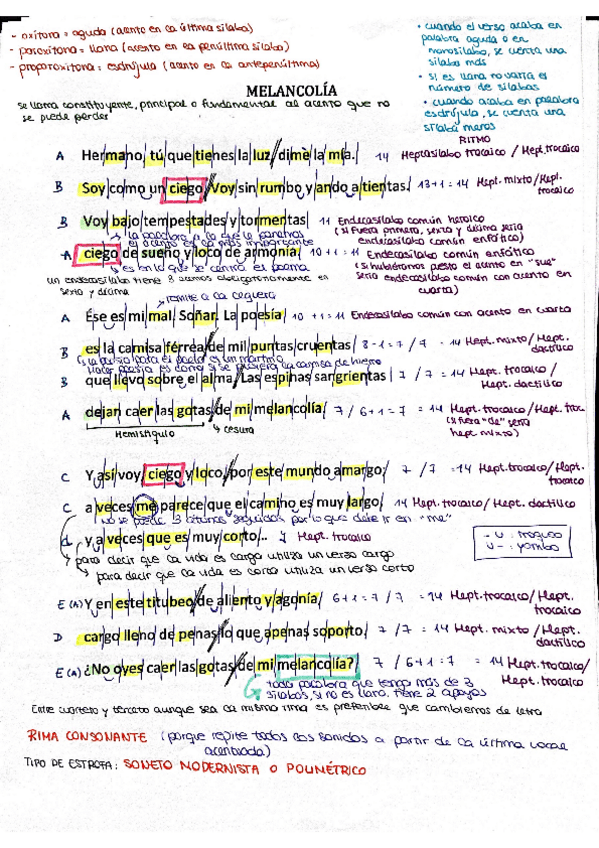 - oxítona = aguda (acento en la última sílaba)
- paroxítona = llana (acento en la penúltima sílaba)
- proparoxítona = esdrújula (acento en la antepenúltima)
• cuando el verso acaba en palabra aguda o en monosílabo, se cuenta una sílaba más
• si es llana no varía el número de sílabas
• cuando acaba en palabra esdrújula, se cuenta una sílaba menos
MELANCOLÍA
se llama constituyente, principal o fundamental al acento que no se puede perder
RITMO
A Hermano, tú que tienes la luz, dime la mía. 14 Heptasílabo trocaico / Hept. trocaico
B Soy como un ciego. Voy sin rumbo y ando a tientas. 13+1 = 14 Hept. mixto / Hept. trocaico
B Voy bajo tempestades y tormentas 11 Endecasílabo común heroico
(si fuera primero, sexta y décima sería endecasílabo común enfático)
A ciego de sueño y loco de armonía. 10+1 = 11 Endecasílabo común enfático
(si hubiéramos puesto el acento en "sue" sería endecasílabo común con acento en cuarta)
es en lo que se centra el poema
un endecasílabo tiene 3 acentos obligatoriamente en sexta y décima
remite a la ceguera
A Ése es mi mal. Soñar. La poesía 10+1 = 11 Endecasílabo común con acento en cuarta
B es la camisa férrea de mil puntas cruentas 8-1 = 7 / 7 = 14 Hept. mixto / Hept. dactílico
B que llevo sobre el alma. Las espinas sangrientas 7 / 7 = 14 Hept. trocaico / Hept. dactílico
A dejan caer las gotas de mi melancolía. 7 / 6+1 = 7 = 14 Hept. trocaico / Hept. troc.
(si fuera "de" sería hept mixto)
Hemistiquio
cesura
C Y así voy, ciego y loco, por este mundo amargo; 7 / 7 = 14 Hept. trocaico / Hept. trocaico
C a veces me parece que el camino es muy largo, 14 Hept. trocaico / Hept. dactílico
no se puede 3 átonas seguidas por lo que debe ir en "me"
d y a veces que es muy corto... 7 Hept. trocaico
- U : troqueo
U - : yambo
para decir que la vida es larga utiliza un verso largo
para decir que la vida es corta utiliza un verso corto
E (A) Y en este titubeo de aliento y agonía, 6+1 = 7 / 7 = 14 Hept. trocaico / Hept. trocaico
D cargo lleno de penas lo que apenas soporto. 7 / 7 = 14 Hept. mixto / Hept. dactílico
E (A) ¿No oyes caer las gotas de mi melancolía? 7 / 6+1 = 7 = 14 Hept. trocaico / Hept. trocaico
toda palabra que tenga más de 3 sílabas, si no es llana, tiene 2 apoyos
Entre cuarteto y terceto aunque sea la misma rima es preferible que cambiemos de letra
RIMA CONSONANTE (porque repite todos los sonidos a partir de la última vocal acentuada)
TIPO DE ESTROFA: SONETO MODERNISTA O POLIMÉTRICO